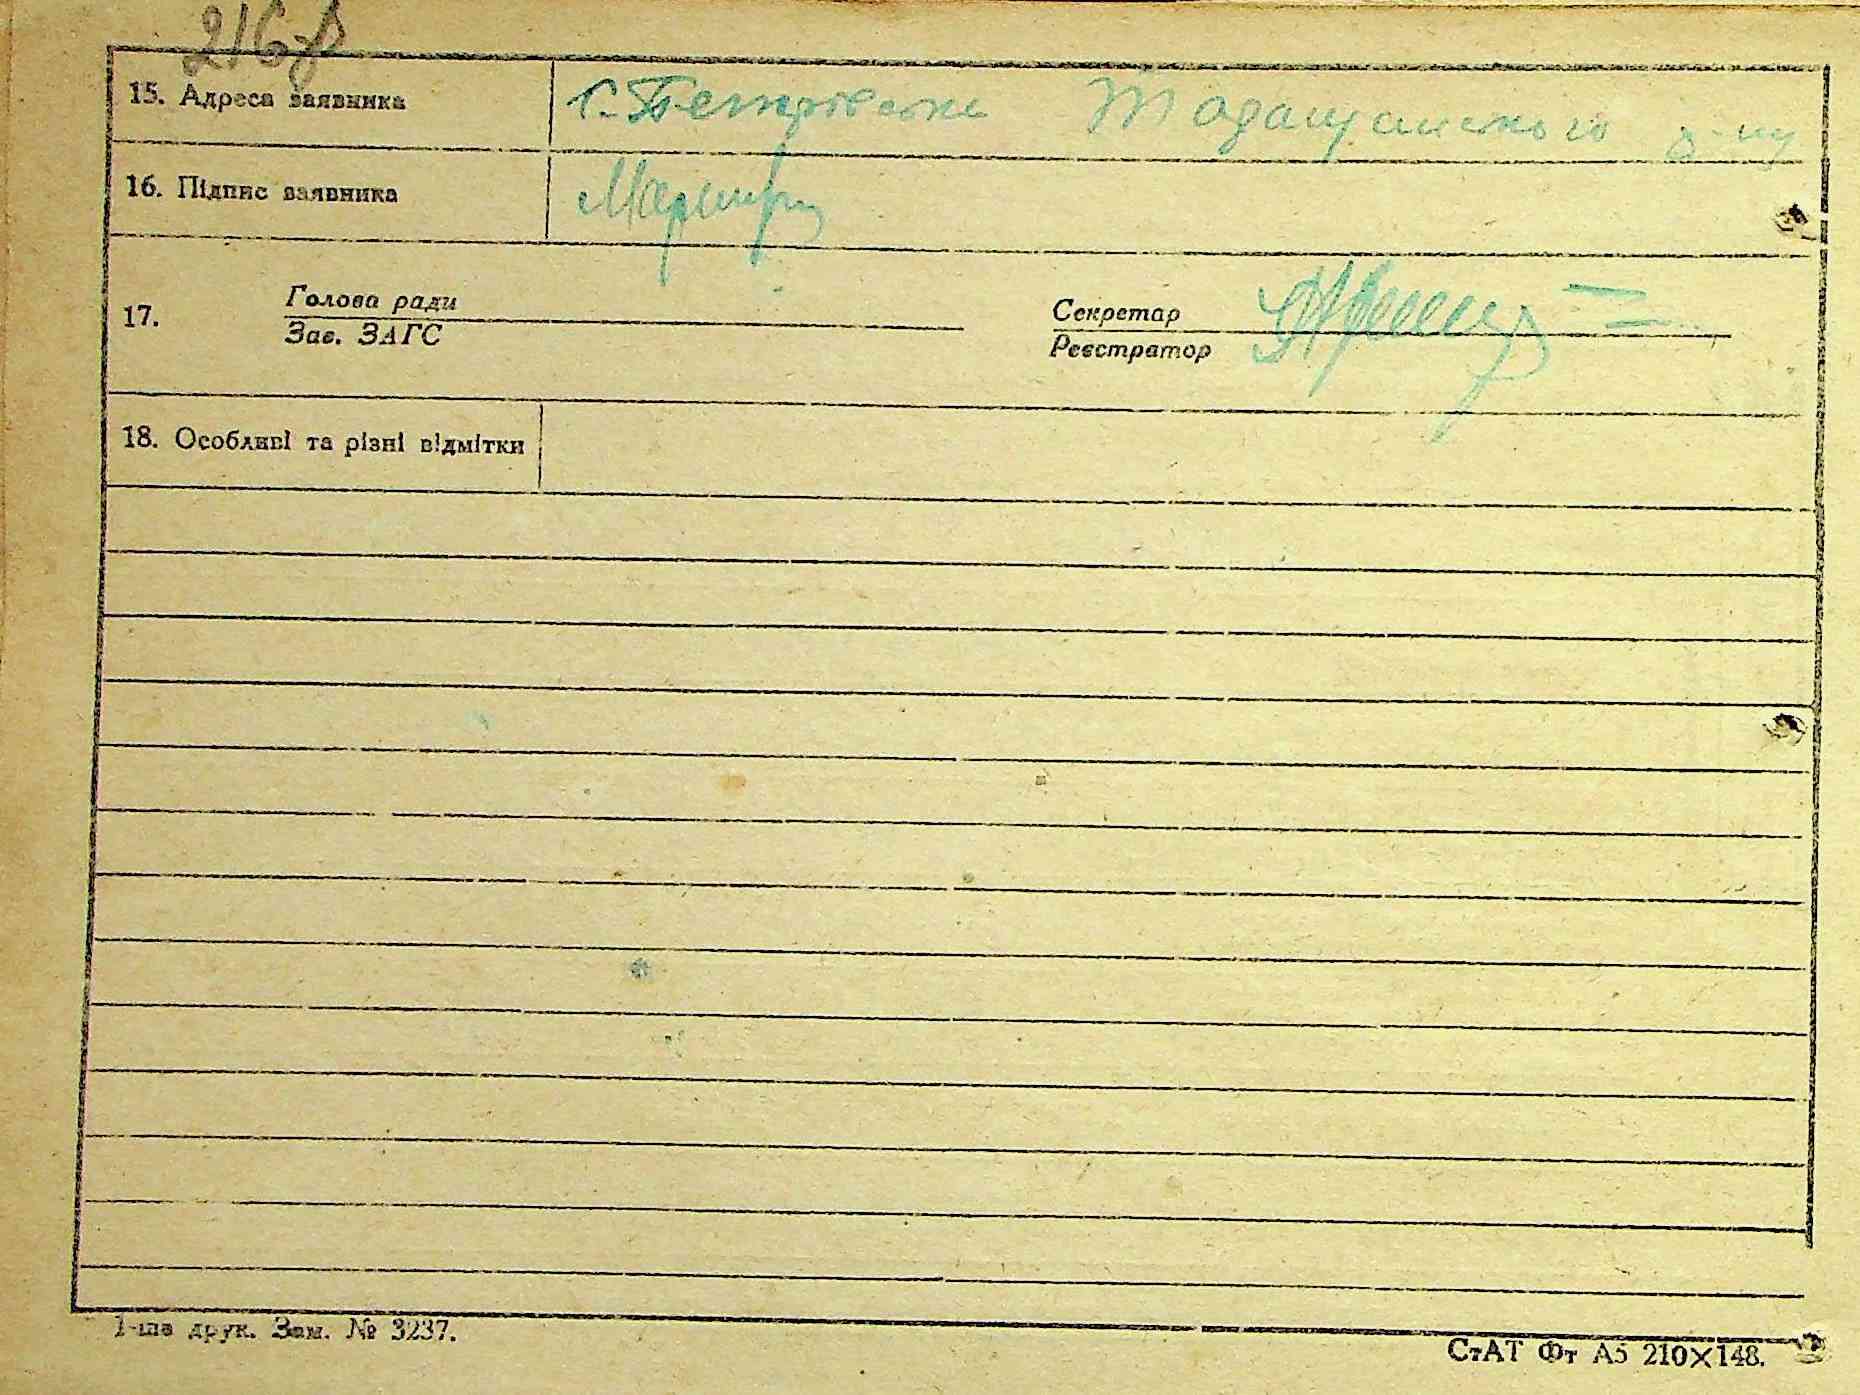 15. Адреса заявника с. Петрівське
16. Підпис заявника
17. Голова ради Секретар
Зав. ЗАГС Реєстратор
18. Особливі та різні відмітки
1-ша друк. Зам. № 3237.
СтАТ Фт А5 210×148.